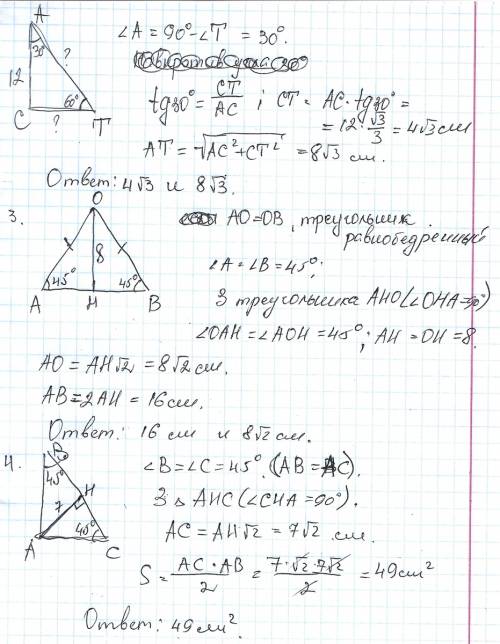 A
30°
?
12
60°
C
?
T
∠A = 90° - ∠T = 30°.
tg30° = CT/AC ; CT = AC · tg30° =
= 12 · √3/3 = 4√3 см
AT = √AC²+CT² = 8√3 см.
Ответ: 4√3 и 8√3.
3.
O
8
45°
45°
A
H
B
AO=OB, треугольник
равнобедренный
∠A = ∠B = 45°;
З треугольника AHO (∠OHA=90°)
∠OAH = ∠AOH = 45°; AH = OH = 8.
AO = AH√2 = 8√2 см.
AB = 2AH = 16 см.
Ответ: 16 см и 8√2 см.
4.
B
45°
H
7
45°
A
C
∠B = ∠C = 45°. (AB = AC).
З Δ AHC (∠CHA = 90°).
AC = AH√2 = 7√2 см.
S = AC · AB/2 = 7·√2·7√2/2 = 49 см²
Ответ: 49 см².